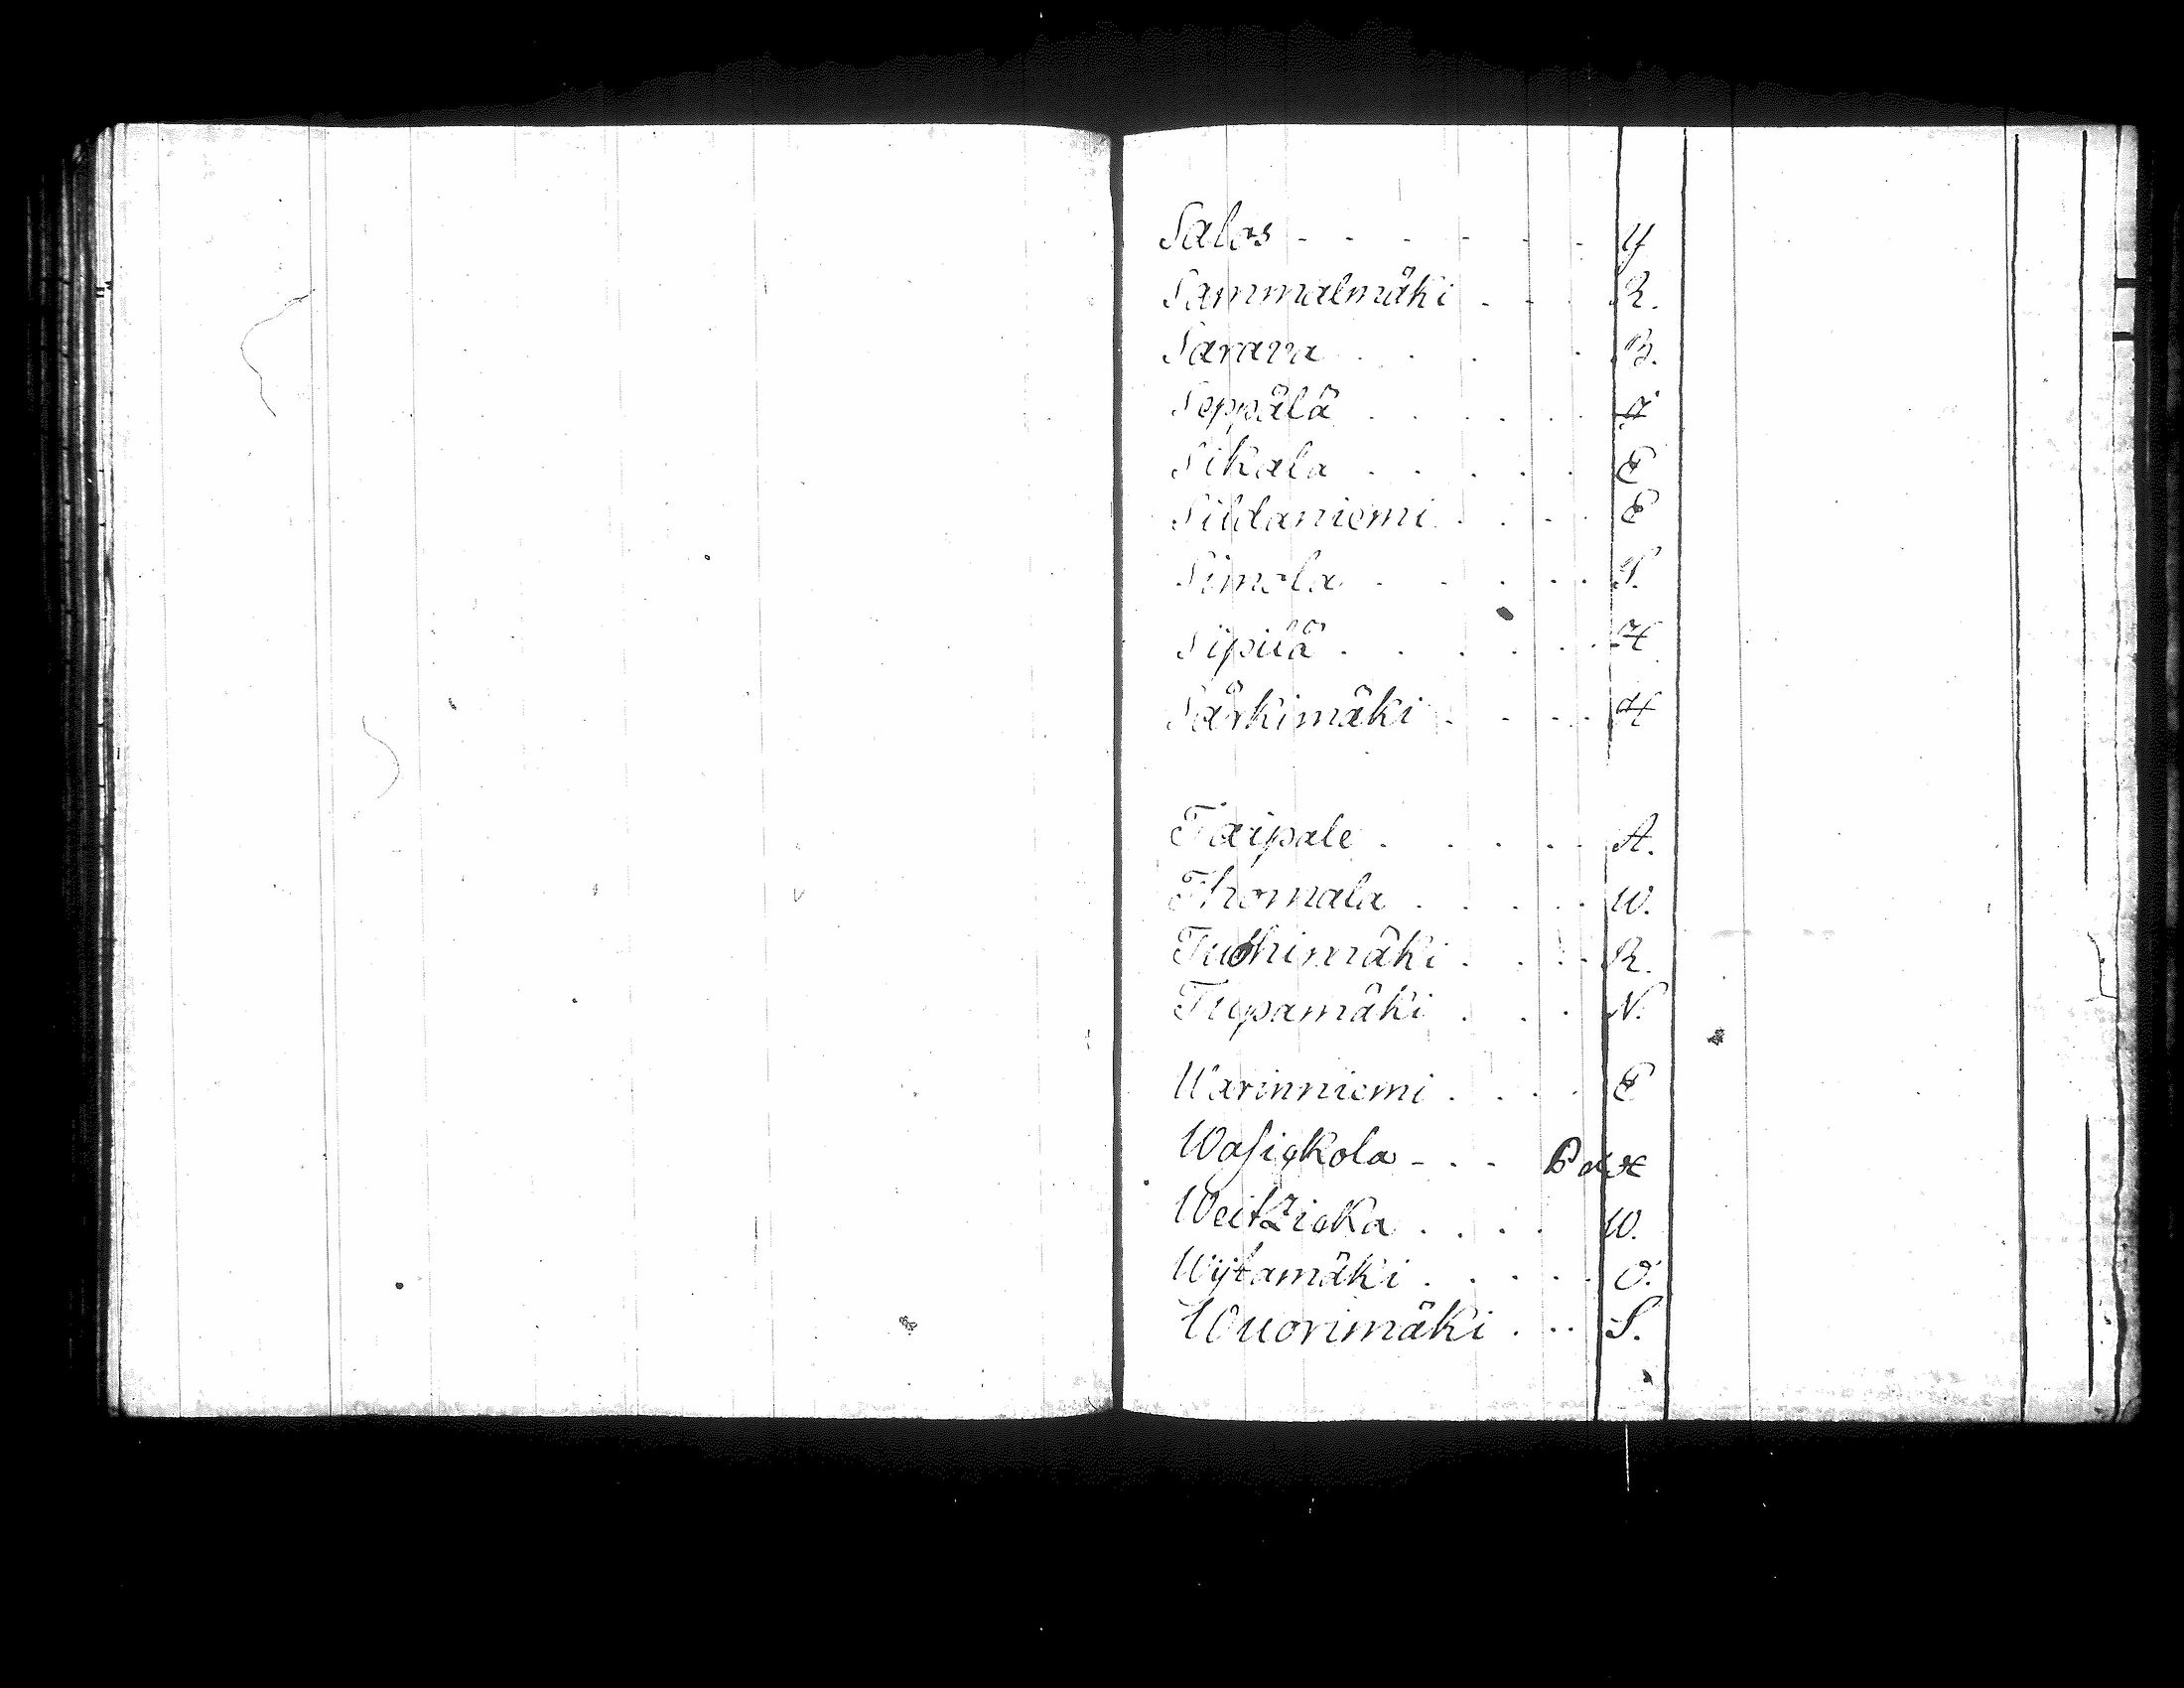 Salos - - - - - - Y
Sammalmäki - - - R.
Sarava . . . . B.
Seppälä . . . . .
Sikala . . . . . E
Sildaniemi . . . . E
Simola . . . . . S.
Sipilä . . . . . . H
Särkimäki . . . . H
Taipale . . . . . A.
Thomala . . . . . W.
Tuohimäki . . . . R.
Tupamäki . . . N.
Warinniemi . . . . E
Wasikkola - . -
Weitzicka . . . . W.
Wijtamäki . . . . . O.
Wuorimäki . . . S.